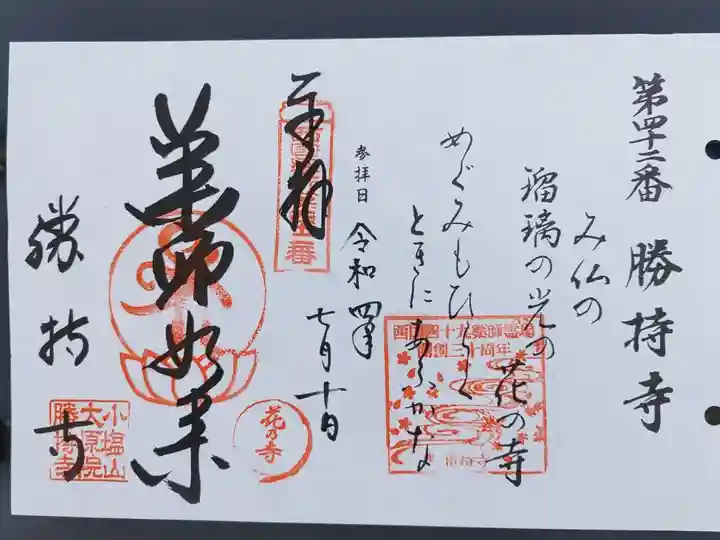 第四十二番 勝持寺
み仏の
瑠璃の光の
花の寺
めぐみもひらく
ときにあふかな
参拝日 令和四年七月十日
奉拝
薬師如来
勝持寺
西国四十九薬師霊場
開創三十周年
花の寺
小塩山
大原院
勝持寺